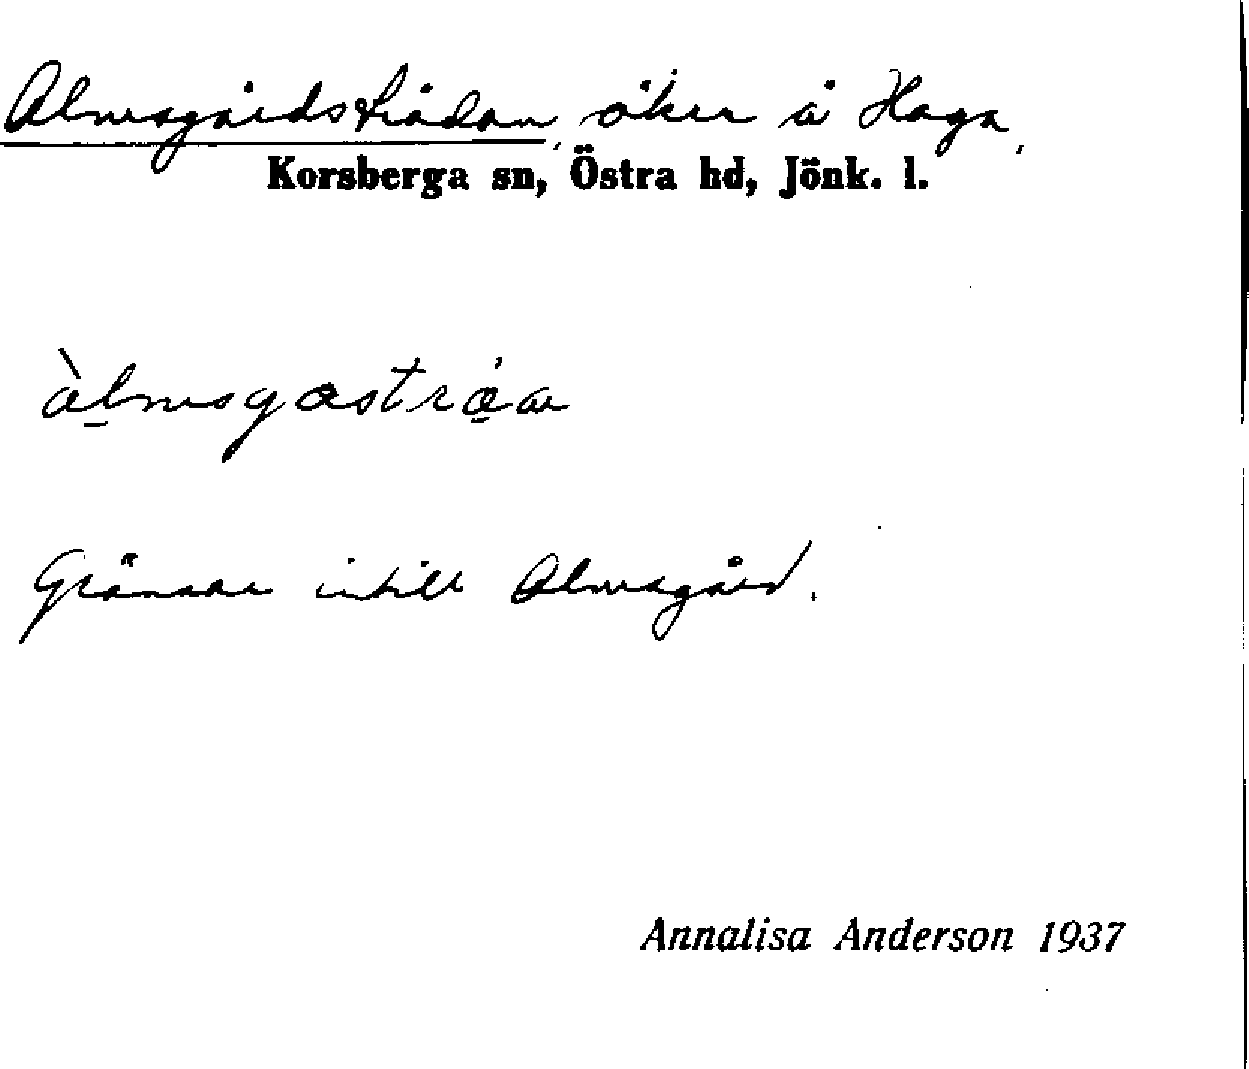 Almsgårdsträdan, åker å Haga,
Korsberga sn, Östra hd, Jönk. l.
àlmsgastráa
Gränsar intill Almsgård.
Annalisa Anderson 1937